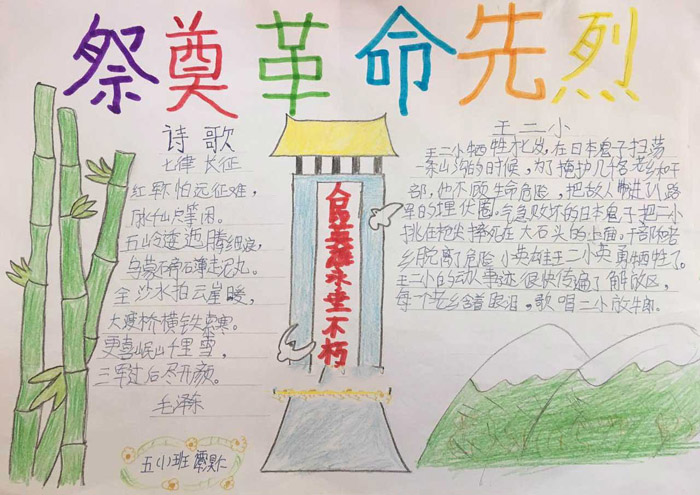 祭奠革命先烈
诗歌
七律 长征
红军不怕远征难,
万水千山只等闲。
五岭逶迤腾细浪,
乌蒙磅礴走泥丸。
金沙水拍云崖暖,
大渡桥横铁索寒。
更喜岷山千里雪,
三军过后尽开颜。
毛泽东
人民英雄永垂不朽
王二小
王二小牺牲才岁,在日本鬼子扫荡
一条山沟的时候,为了掩护几千名老乡和干
部,他不顾生命危险,把敌人带进八路
军的埋伏圈。气急败坏的日本鬼子把二小
挑在枪尖摔死在大石头的上面。干部和老
乡脱离了危险,小英雄王二小英勇牺牲了。
王二小的动人事迹很快传遍了解放区,
每个老乡含着眼泪,歌唱二小放牛郎。
五班